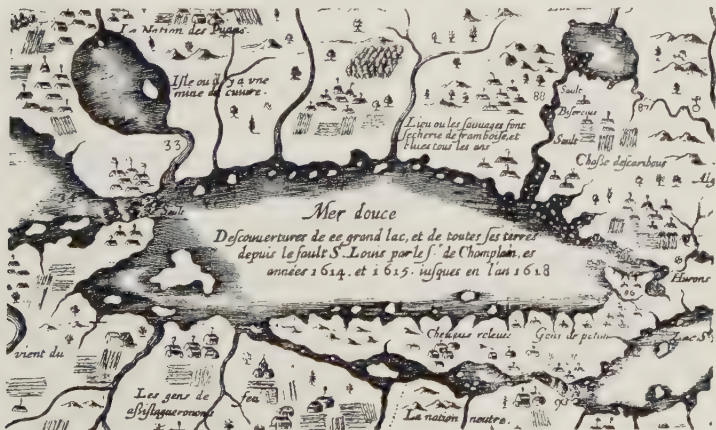 La Nation des Puans
Isle ou il y a vne
mine de cuivre.
33
Lieu ou les sauuages font
secherie de framboise, et
blues tous les ans
Sault
88
Sault
87
Chasse des caribous
Alg
34
Sault
Mer douce
Descouuertures de ce grand lac, et de toutes ses terres
depuis le sault St. Louis par le Sr. de Champlain, es
années 1614. et 1615. iusques en l'an 1618
Hurons
Cheueux releues
Gens de petun
vient du
Les gens de feu
assistaqueronons
La nation neutre.
90